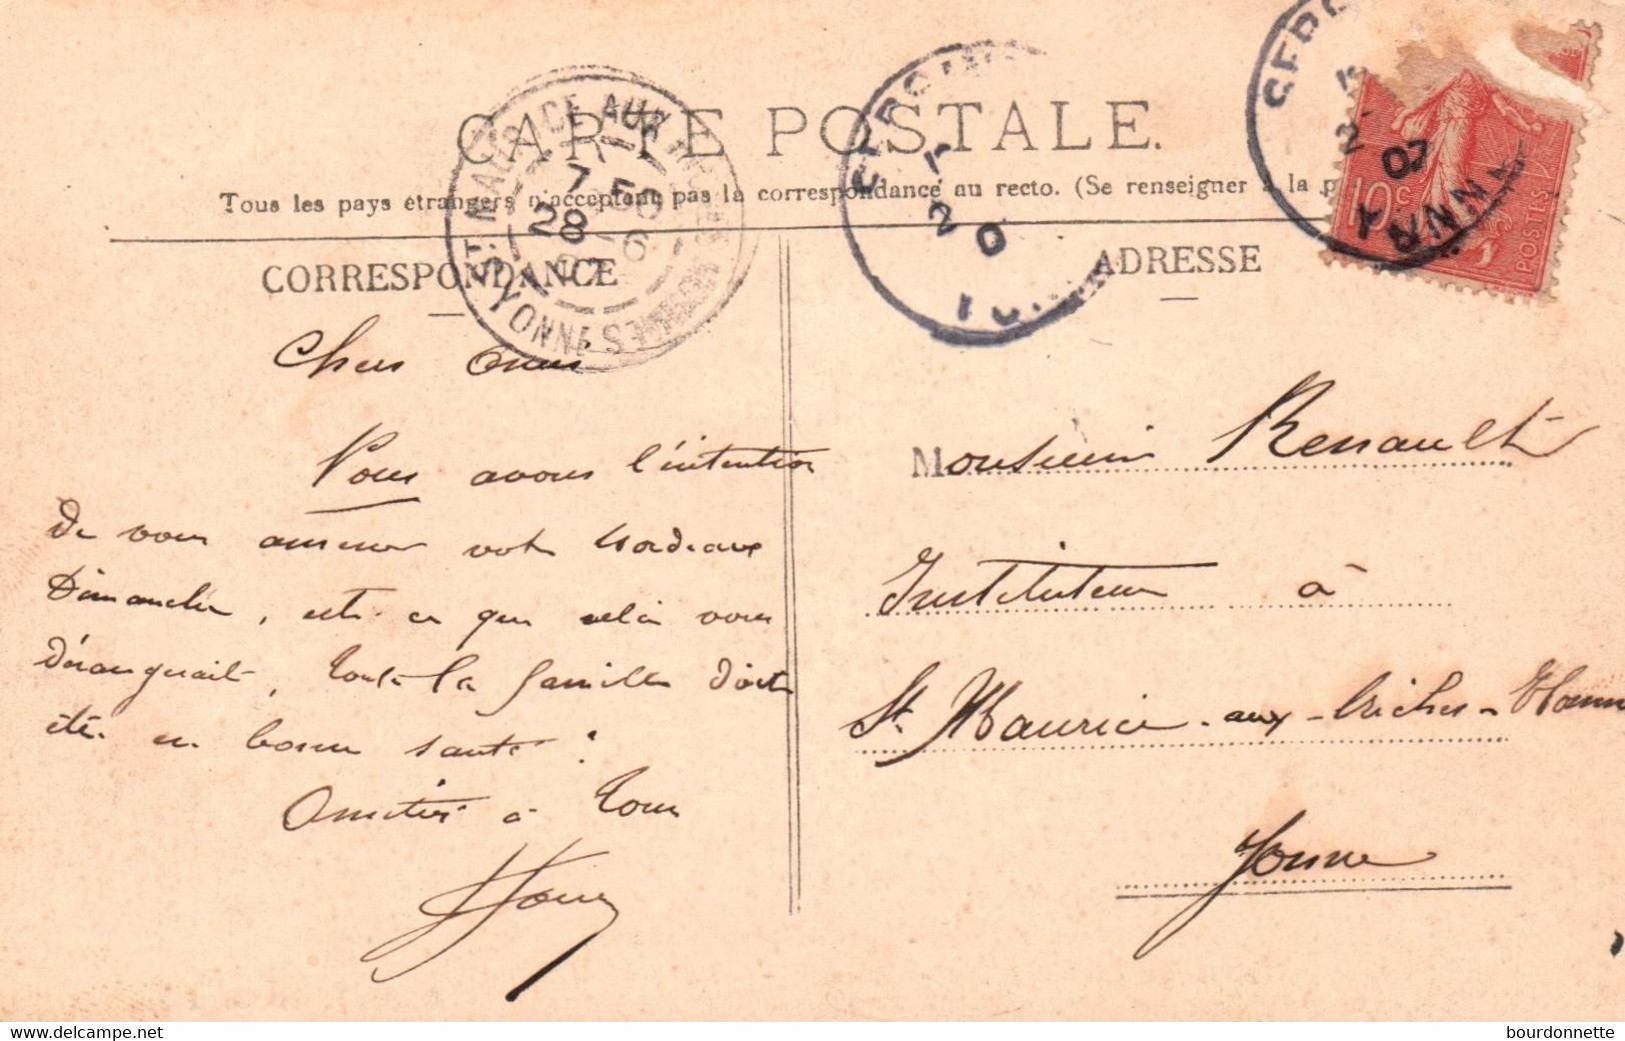 CARTE POSTALE.
Tous les pays étrangers n'acceptent pas la correspondance au recto. (Se renseigner à la p
CORRESPONDANCE
ADRESSE
ST MAURICE AUX RICHES HOMMES
YONNE
7 50
28 - 6
07
CERO
YONNE
2 07
10c
POSTES
Chers Amis
Nous avons l'intention
de vous amener votre bordeaux
Dimanche, est-ce que cela vous
dérangerait, toute la famille doit
été en bonne santé ?
Amitiés à tous
Monsieur Renault
Instituteur à
St Maurice-aux-Riches-Homm
Yonne
www.delcampe.net
bourdonnette